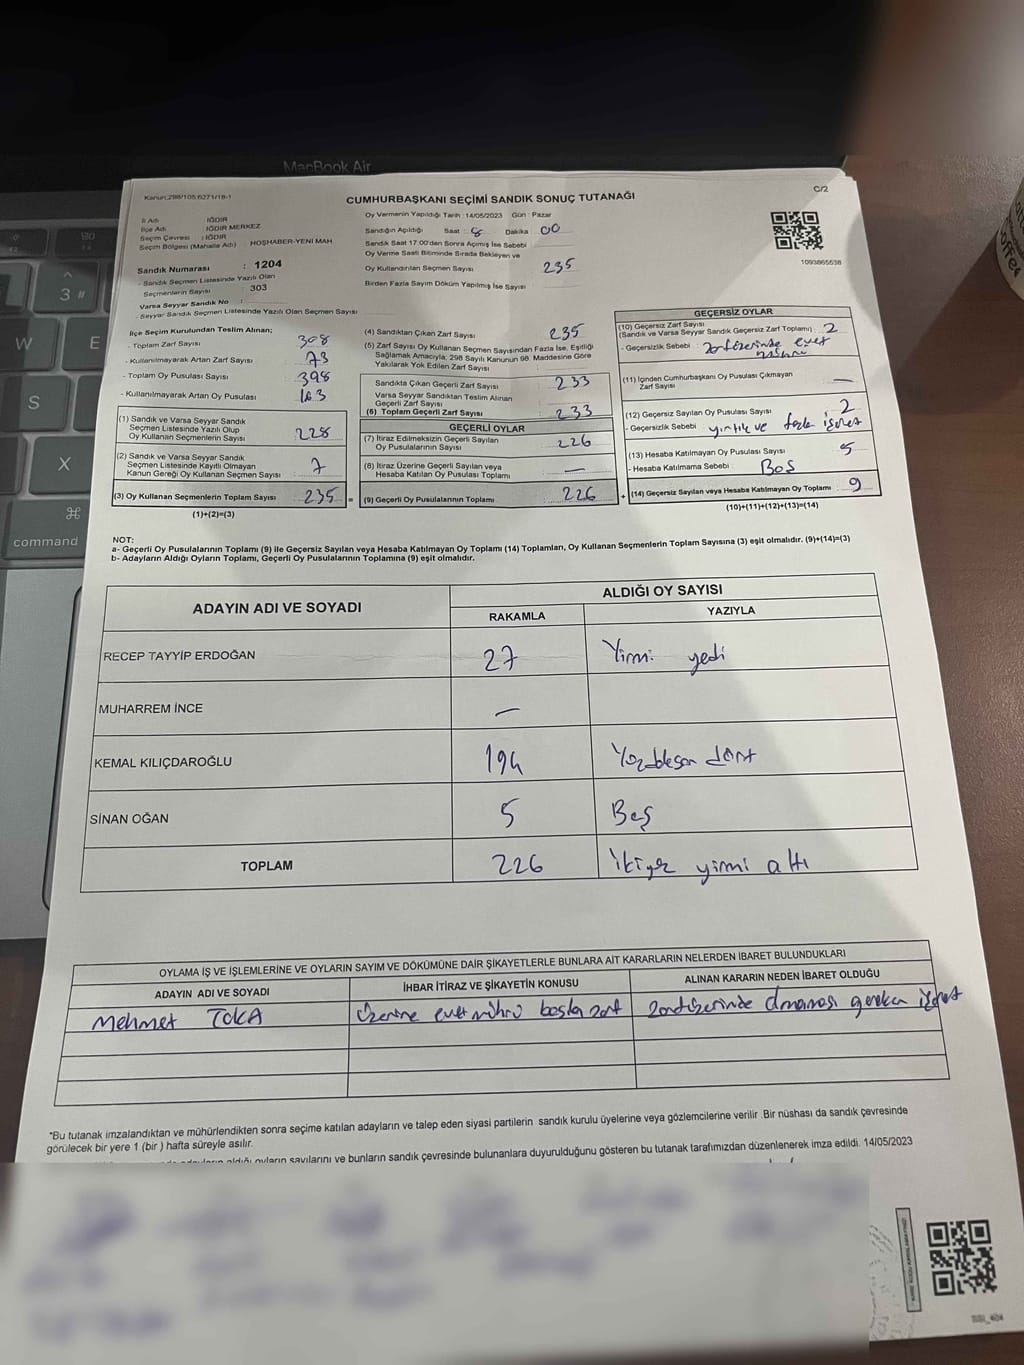 MacBook Air
Kanun:298/105:6271/18-1
C/2
CUMHURBAŞKANI SEÇİMİ SANDIK SONUÇ TUTANAĞI
İl Adı IĞDIR
İlçe Adı IĞDIR MERKEZ
Seçim Çevresi : IĞDIR
Seçim Bölgesi (Mahalle Adı) : HOŞHABER-YENİ MAH
Sandık Numarası : 1204
- Sandık Seçmen Listesinde Yazılı Olan
Seçmenlerin Sayısı : 303
Varsa Seyyar Sandık No :
- Seyyar Sandık Seçmen Listesinde Yazılı Olan Seçmen Sayısı
Oy Vermenin Yapıldığı Tarih : 14/05/2023 Gün : Pazar
Sandığın Açıldığı Saat : 8 Dakika : 00
Sandık Saat 17:00'den Sonra Açımış İse Sebebi
Oy Verme Saati Bitiminde Sırada Bekleyen ve
Oy Kullandırılan Seçmen Sayısı 235
Birden Fazla Sayım Döküm Yapılmış İse Sayısı
1093865538
İlçe Seçim Kurulundan Teslim Alınan;
- Toplam Zarf Sayısı 308
- Kullanılmayarak Artan Zarf Sayısı 73
- Toplam Oy Pusulası Sayısı 398
- Kullanılmayarak Artan Oy Pusulası 163
(1) Sandık ve Varsa Seyyar Sandık
Seçmen Listesinde Yazılı Olup
Oy Kullanan Seçmenlerin Sayısı 228
(2) Sandık ve Varsa Seyyar Sandık
Seçmen Listesinde Kayıtlı Olmayan
Kanun Gereği Oy Kullanan Seçmen Sayısı 7
(3) Oy Kullanan Seçmenlerin Toplam Sayısı 235 =
(1)+(2)=(3)
(4) Sandıktan Çıkan Zarf Sayısı 235
(5) Zarf Sayısı Oy Kullanan Seçmen Sayısından Fazla İse, Eşitliği
Sağlamak Amacıyla; 298 Sayılı Kanunun 98. Maddesine Göre
Yakılarak Yok Edilen Zarf Sayısı
Sandıkta Çıkan Geçerli Zarf Sayısı 233
Varsa Seyyar Sandıktan Teslim Alınan
Geçerli Zarf Sayısı
(6) Toplam Geçerli Zarf Sayısı 233
GEÇERLİ OYLAR
(7) İtiraz Edilmeksizin Geçerli Sayılan
Oy Pusulalarının Sayısı 226
(8) İtiraz Üzerine Geçerli Sayılan veya
Hesaba Katılan Oy Pusulası Toplamı —
(9) Geçerli Oy Pusulalarının Toplamı 226 +
GEÇERSİZ OYLAR
(10) Geçersiz Zarf Sayısı
(Sandık ve Varsa Seyyar Sandık Geçersiz Zarf Toplamı) : 2
- Geçersizlik Sebebi : zarf üzerinde evet
mührü
(11) İçinden Cumhurbaşkanı Oy Pusulası Çıkmayan
Zarf Sayısı —
(12) Geçersiz Sayılan Oy Pusulası Sayısı 2
- Geçersizlik Sebebi yırtık ve fazla işaret
(13) Hesaba Katılmayan Oy Pusulası Sayısı 5
- Hesaba Katılmama Sebebi : BoS
(14) Geçersiz Sayılan veya Hesaba Katılmayan Oy Toplamı 9
(10)+(11)+(12)+(13)=(14)
NOT:
a- Geçerli Oy Pusulalarının Toplamı (9) ile Geçersiz Sayılan veya Hesaba Katılmayan Oy Toplamı (14) Toplamları, Oy Kullanan Seçmenlerin Toplam Sayısına (3) eşit olmalıdır. (9)+(14)=(3)
b- Adayların Aldığı Oyların Toplamı, Geçerli Oy Pusulalarının Toplamına (9) eşit olmalıdır.
ADAYIN ADI VE SOYADI
ALDIĞI OY SAYISI
RAKAMLA YAZIYLA
RECEP TAYYİP ERDOĞAN 27 Yirmi yedi
MUHARREM İNCE —
KEMAL KILIÇDAROĞLU 194 Yüzdoksan dört
SİNAN OĞAN 5 Beş
TOPLAM 226 ikiyüz yirmi altı
OYLAMA İŞ VE İŞLEMLERİNE VE OYLARIN SAYIM VE DÖKÜMÜNE DAİR ŞİKAYETLERLE BUNLARA AİT KARARLARIN NELERDEN İBARET BULUNDUKLARI
ADAYIN ADI VE SOYADI İHBAR İTİRAZ VE ŞİKAYETİN KONUSU ALINAN KARARIN NEDEN İBARET OLDUĞU
Mehmet TOKA Üzerine evet mührü basılan zarf zarf üzerinde olmaması gereken işaret
*Bu tutanak imzalandıktan ve mühürlendikten sonra seçime katılan adayların ve talep eden siyasi partilerin sandık kurulu üyelerine veya gözlemcilerine verilir .Bir nüshası da sandık çevresinde
görülecek bir yere 1 (bir ) hafta süreyle asılır.
aldığı oyların sayılarını ve bunların sandık çevresinde bulunanlara duyurulduğunu gösteren bu tutanak tarafımızdan düzenlenerek imza edildi. 14/05/2023
W
E
3 #
S
X
⌘
command